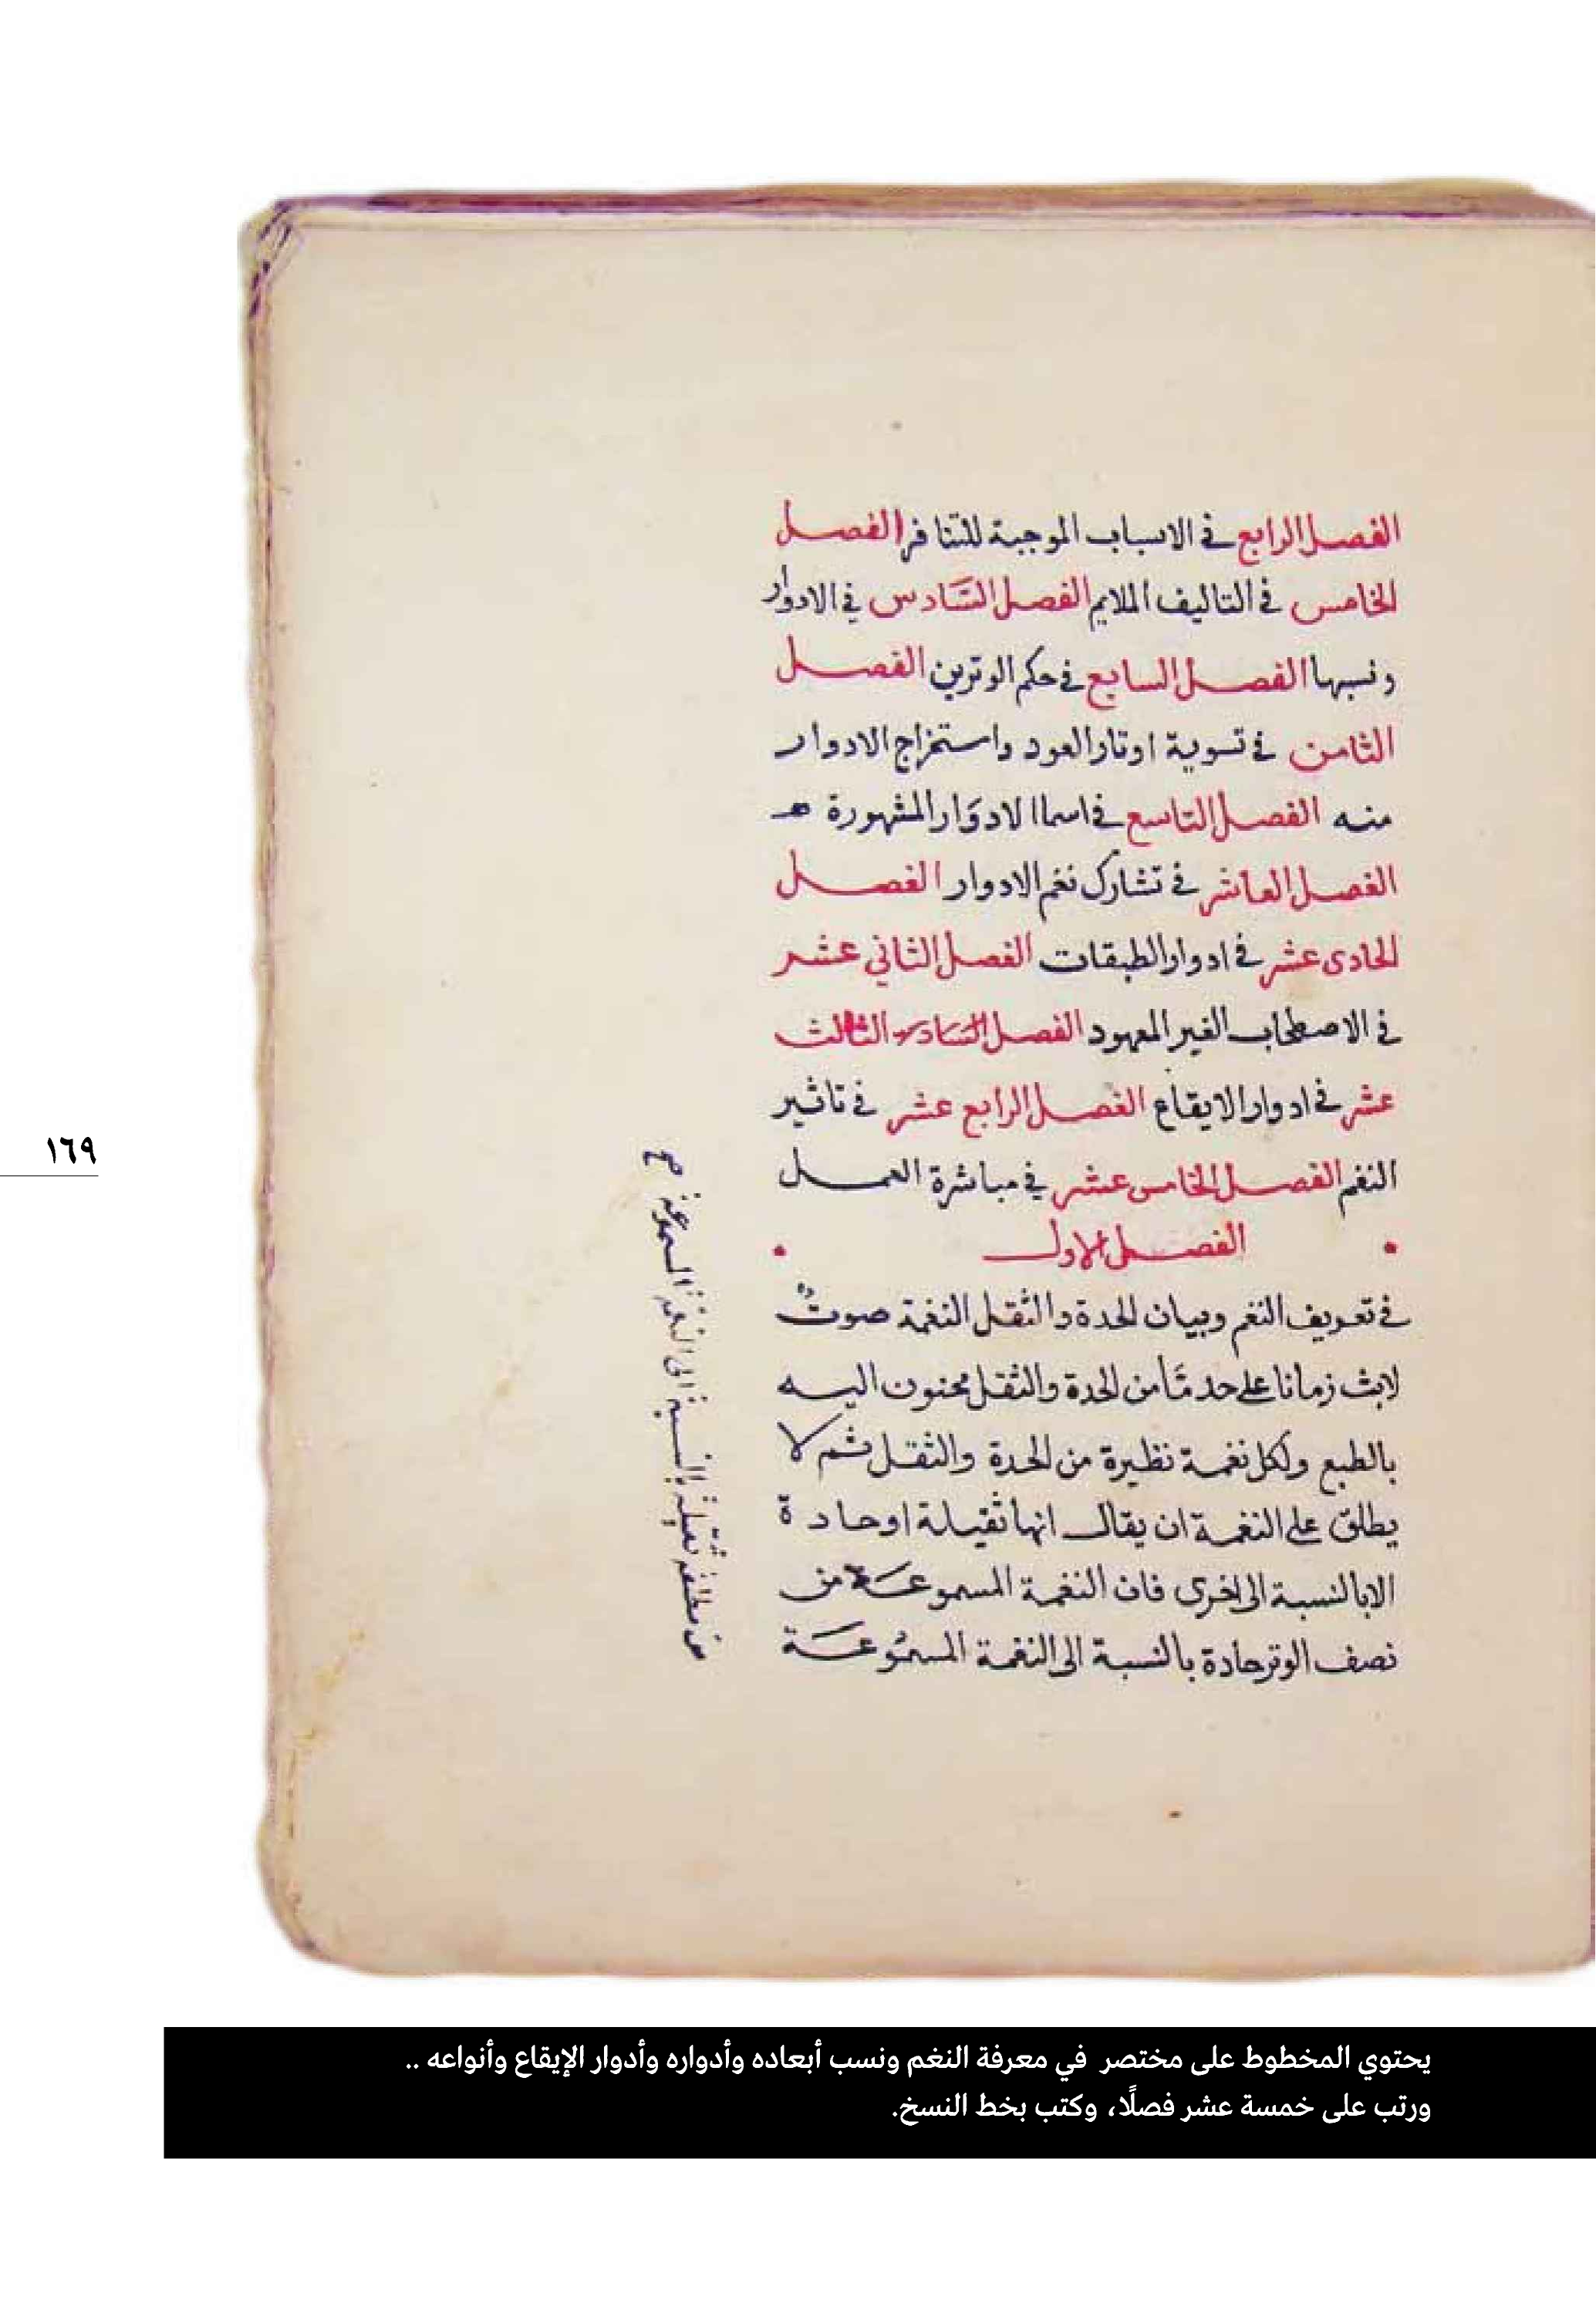 الفصل الرابع في الاسباب الموجبة للتنافر الفصل
الخامس في التاليف الملايم الفصل السَّادس في الادوار
ونسبها الفصل السابع في حكم الوترين الفصل
الثامن في تسوية اوتار العود واستخراج الادوار
منه الفصل التاسع في اسما الادوَار المشهورة
الفصل العاشر في تشارك نغم الادوار الفصل
الحادى عشر في ادوار الطبقات الفصل الثاني عشر
في الاصطحاب الغير المعهود الفصل السَادس الثالث
عشر في ادوار الايقاع الفصل الرابع عشر في تاثير
النغم الفصل الخامس عشر في مباشرة العمل
الفصل الاول
في تعريف النغم وبيان الحدة والثقل النغمة صوتٌ
لابث زمانا على حد مَّا من الحدة والثقل محنون اليه
بالطبع ولكل نغمة نظيرة من الحدة والثقل ثم لا
يطلق على النغمة ان يقال انها ثقيلة او حادة
الا بالنسبة الى اخرى فان النغمة المسموعَة من
نصف الوتر حادة بالنسبة الى النغمة المسمُوعَة
من مطلقه ثقيلة بالنسبة الى النغمة المسموعة
١٦٩
يحتوي المخطوط على مختصر في معرفة النغم ونسب أبعاده وأدواره وأدوار الإيقاع وأنواعه ..
ورتب على خمسة عشر فصلًا، وكتب بخط النسخ.